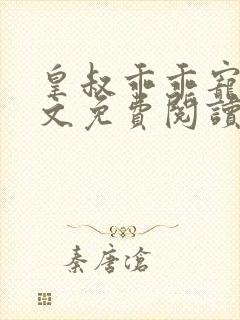 皇叔乖乖寵
文免費閱讀
秦唐滄